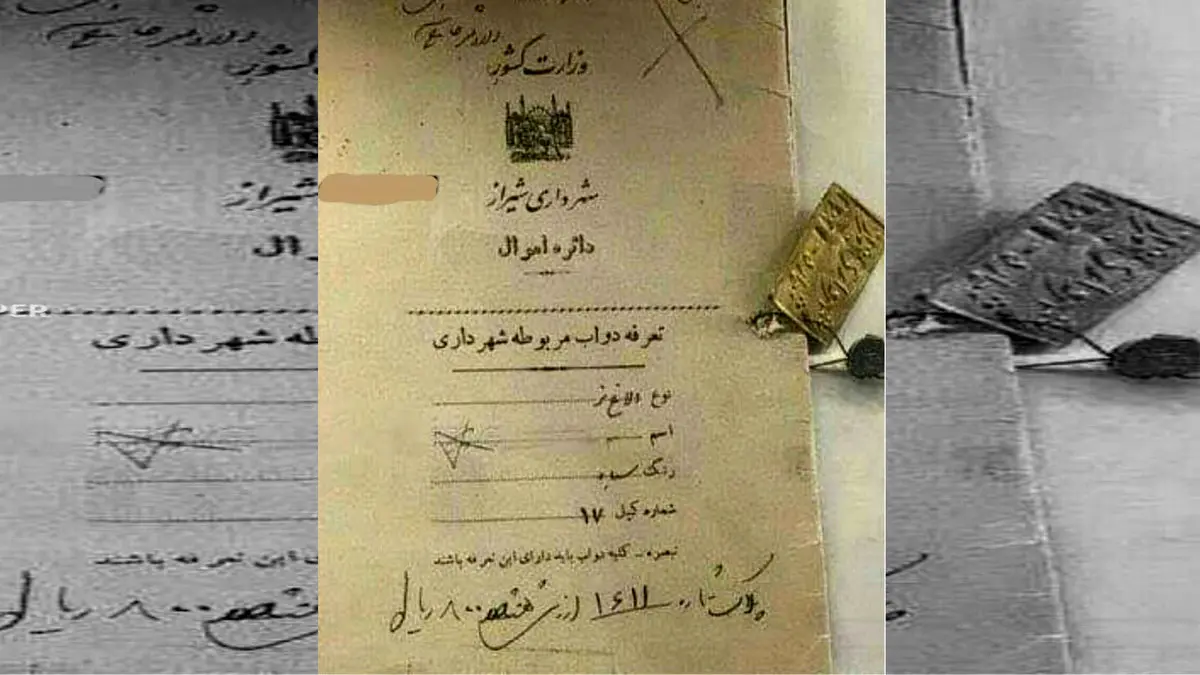 وزارت کشور
شهرداری شیراز
دائره اموال
تعرفه دواب مربوطه شهرداری
نوع الاغ نر
اسم
رنگ سیاه
شماره کپل ۱۷
تبصره ـ کلیه دواب باید دارای این تعرفه باشند
پلاک شماره ۱۶۱۱ ارزش هشتصد ۸۰۰ ریال